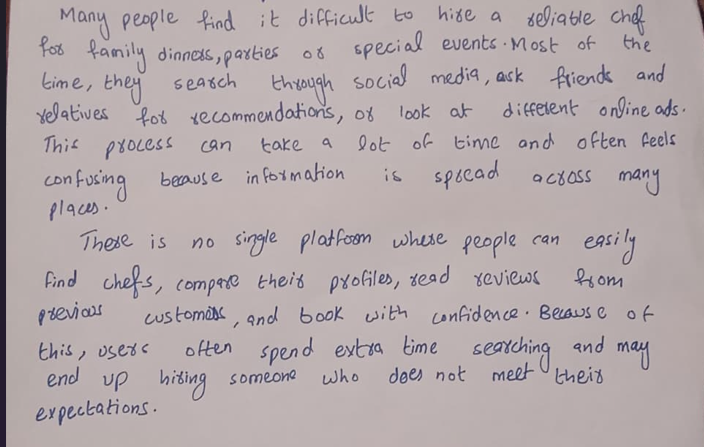 Many people find it difficult to hire a reliable chef
for family dinners, parties or special events. Most of the
time, they search through social media, ask friends and
relatives for recommendations, or look at different online ads.
This process can take a lot of time and often feels
confusing because information is spread across many
places.
There is no single platform where people can easily
find chefs, compare their profiles, read reviews from
previous customers, and book with confidence. Because of
this, users often spend extra time searching and may
end up hiring someone who does not meet their
expectations.